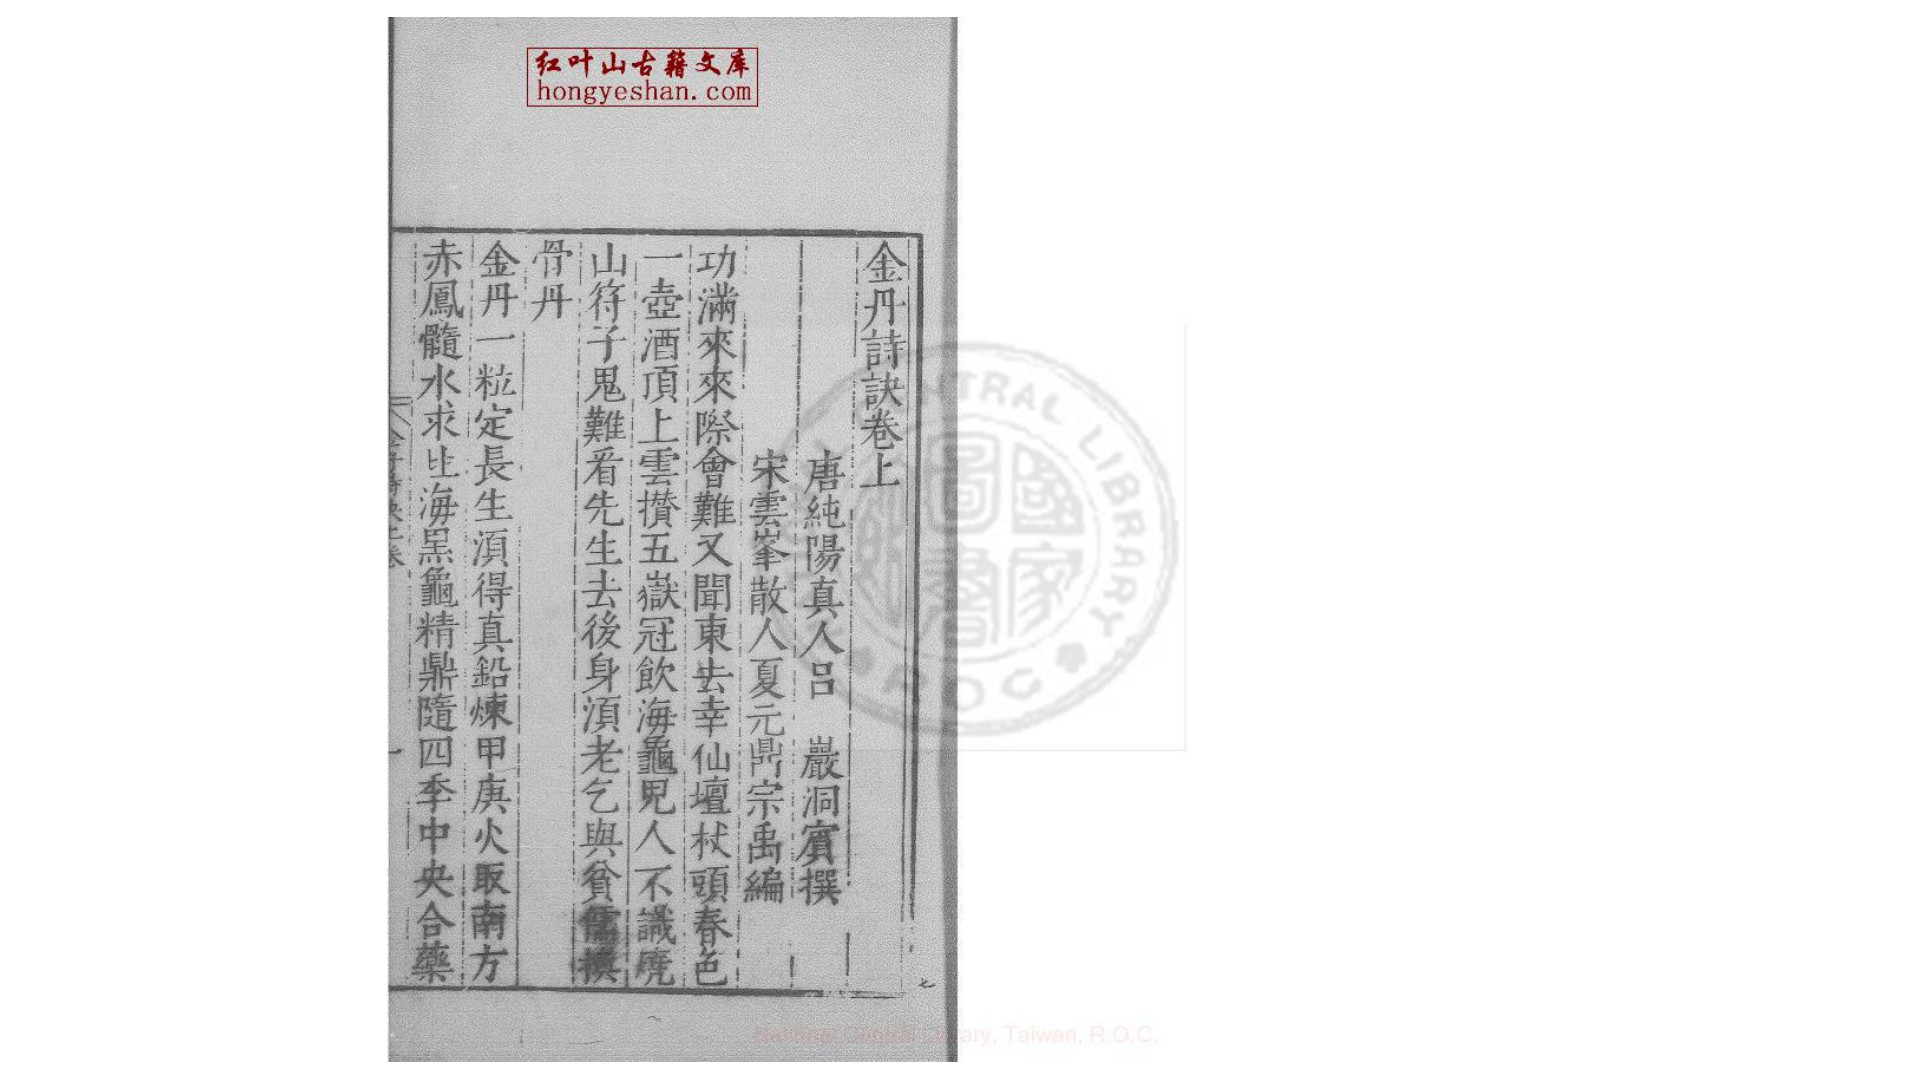 红叶山古籍文库
hongyeshan.com
金丹詩訣卷上
唐純陽真人呂 巖洞賓撰
宋雲峯散人夏元鼎宗禹編
功滿來來際會難又聞東去幸仙壇杖頭春色
一壺酒頂上雲攅五嶽冠飲海龜兒人不識燒
山符子鬼難看先生去後身湏老乞與貧儒換
骨丹
金丹一粒定長生湏得真鉛煉甲庚火取南方
赤鳳髓水求北海黑龜精鼎隨四季中央合藥
一
CENTRAL LIBRARY
R.O.C.
國家圖書館
National Central Library, Taiwan, R.O.C.